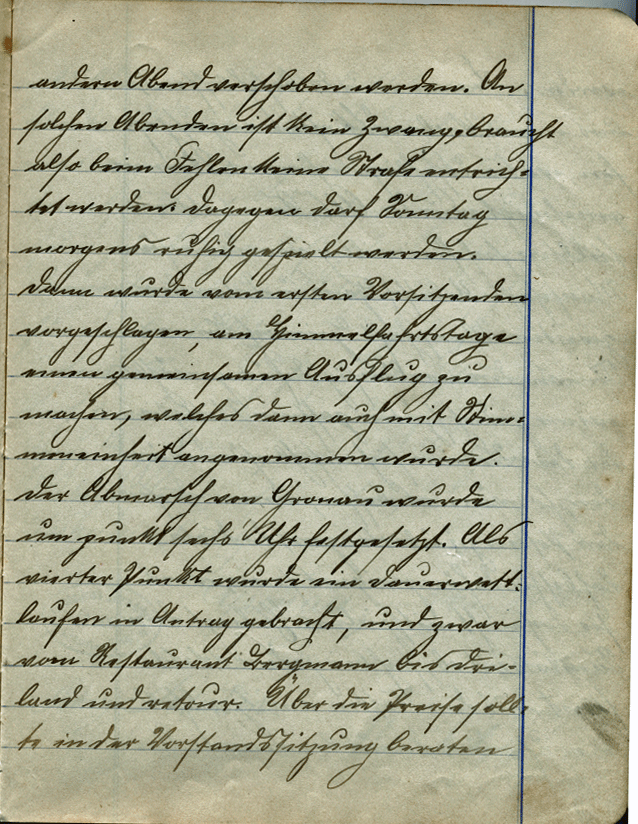 andern Abend verschoben werden. An
solchen Abenden ist kein Zwang, braucht
also beim Fehlen keine Strafe entrich-
tet werden. Dagegen darf Sonntag
morgens ruhig gespielt werden.
Dann wurde vom ersten Vorsitzenden
vorgeschlagen, am Himmelfahrtstage
einen gemeinsamen Ausflug zu
machen, welches dann auch mit Stim-
meneinheit angenommen wurde.
Der Abmarsch von Gronau wurde
um punkt sechs Uhr festgesetzt. Als
vierter Punkt wurde ein Dauerwett-
laufen in Antrag gebracht, und zwar
vom Restaurant Bergmann bis Dri-
land und retour. Über die Preise soll-
te in der Vorstandssitzung beraten